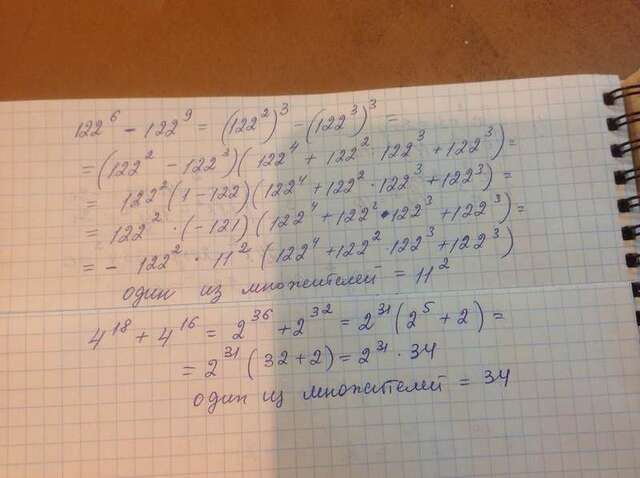 122⁶ - 122⁹ = (122²)³ - (122³)³ =
= (122² - 122³)(122⁴ + 122² · 122³ + 122³) =
= 122²(1 - 122)(122⁴ + 122² · 122³ + 122³) =
= 122² · (-121)(122⁴ + 122² · 122³ + 122³) =
= - 122² · 11² (122⁴ + 122² · 122³ + 122³)
один из множителей = 11²
4¹⁸ + 4¹⁶ = 2³⁶ + 2³² = 2³¹(2⁵ + 2) =
= 2³¹(32 + 2) = 2³¹ · 34
один из множителей = 34